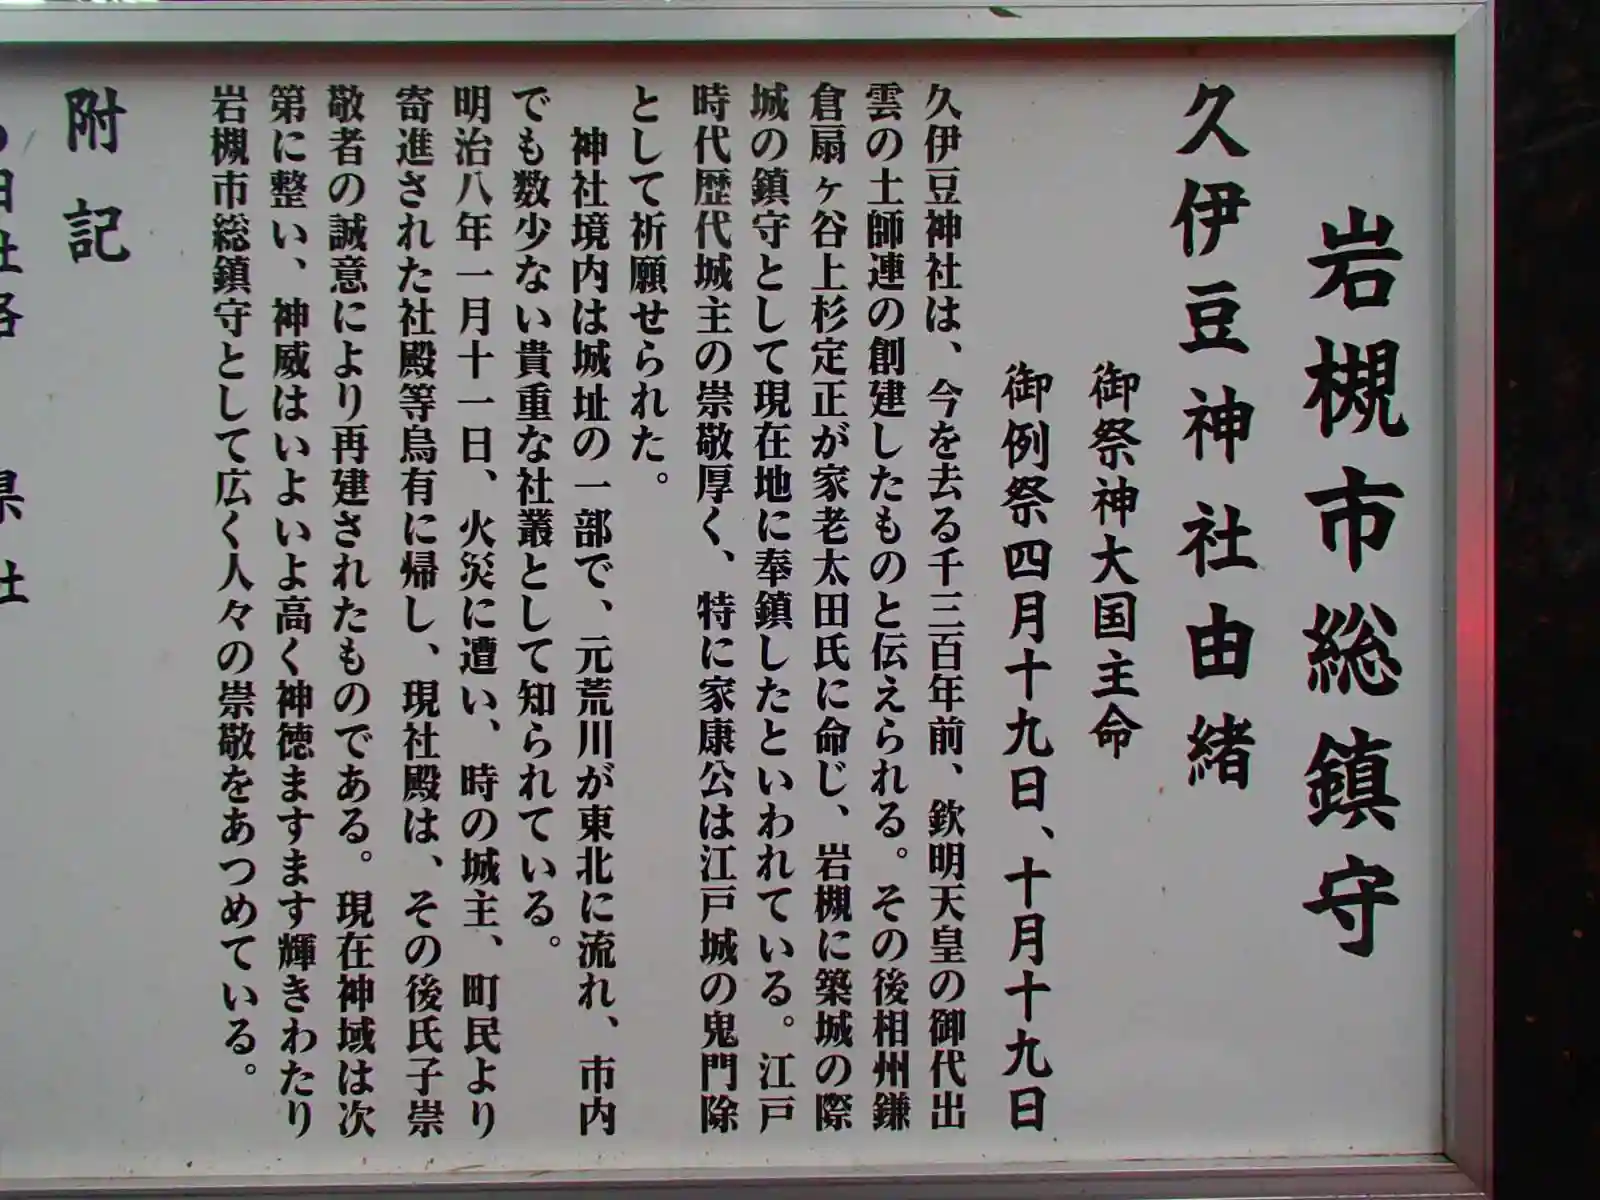 岩槻市総鎮守
久伊豆神社由緒
御祭神大国主命
御例祭四月十九日、十月十九日
久伊豆神社は、今を去る千三百年前、欽明天皇の御代出
雲の土師連の創建したものと伝えられる。その後相州鎌
倉扇ヶ谷上杉定正が家老太田氏に命じ、岩槻に築城の際
城の鎮守として現在地に奉鎮したといわれている。江戸
時代歴代城主の崇敬厚く、特に家康公は江戸城の鬼門除
として祈願せられた。
神社境内は城址の一部で、元荒川が東北に流れ、市内
でも数少ない貴重な社叢として知られている。
明治八年一月十一日、火災に遭い、時の城主、町民より
寄進された社殿等烏有に帰し、現社殿は、その後氏子崇
敬者の誠意により再建されたものである。現在神域は次
第に整い、神威はいよいよ高く神徳ますます輝きわたり
岩槻市総鎮守として広く人々の崇敬をあつめている。
附記
社格 県社